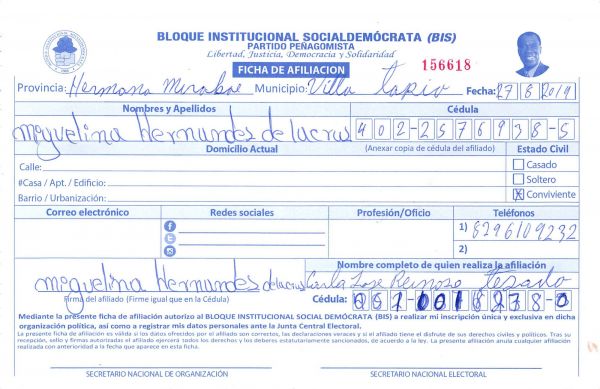 BLOQUE INSTITUCIONAL SOCIALDEMÓCRATA (BIS)
PARTIDO PEÑAGOMISTA
Libertad, Justicia, Democracia y Solidaridad
FICHA DE AFILIACION
156618
Provincia: Hermana Mirabal Municipio: Villa tapia Fecha: 27/8/2019
Nombres y Apellidos
Cédula
Miguelina Hernandes de lacrus 402-2576938-5
Domicilio Actual
(Anexar copia de cédula del afiliado)
Estado Civil
Calle:
Casado
#Casa / Apt. / Edificio:
Soltero
Barrio / Urbanización:
X Conviviente
Correo electrónico
Redes sociales
Profesión/Oficio
Teléfonos
1) 8296109232
2)
Nombre completo de quien realiza la afiliación
Miguelina Hernandes delacrus
Carla Jose Reinoso
Firma del afiliado (Firme igual que en la Cédula)
Cédula:
Mediante la presente ficha de afiliación autorizo al BLOQUE INSTITUCIONAL SOCIAL DEMÓCRATA (BIS) a realizar mi inscripción única y exclusiva en dicha
organización política, así como a registrar mis datos personales ante la Junta Central Electoral.
La presente ficha de afiliación es válida si los datos ofrecidos por el afiliado son correctos, las declaraciones veraces y si el afiliado tiene el disfrute de sus derechos civiles y políticos. Tras su
recepción, sello y firmas autorizadas el afiliado ejercerá todos los derechos y los deberes estatutariamente sancionados, de acuerdo a la ley. La presente afiliación anula cualquier afiliación
realizada con anterioridad a la fecha que aparece en esta ficha.
SECRETARIO NACIONAL DE ORGANIZACIÓN
SECRETARIO NACIONAL ELECTORAL